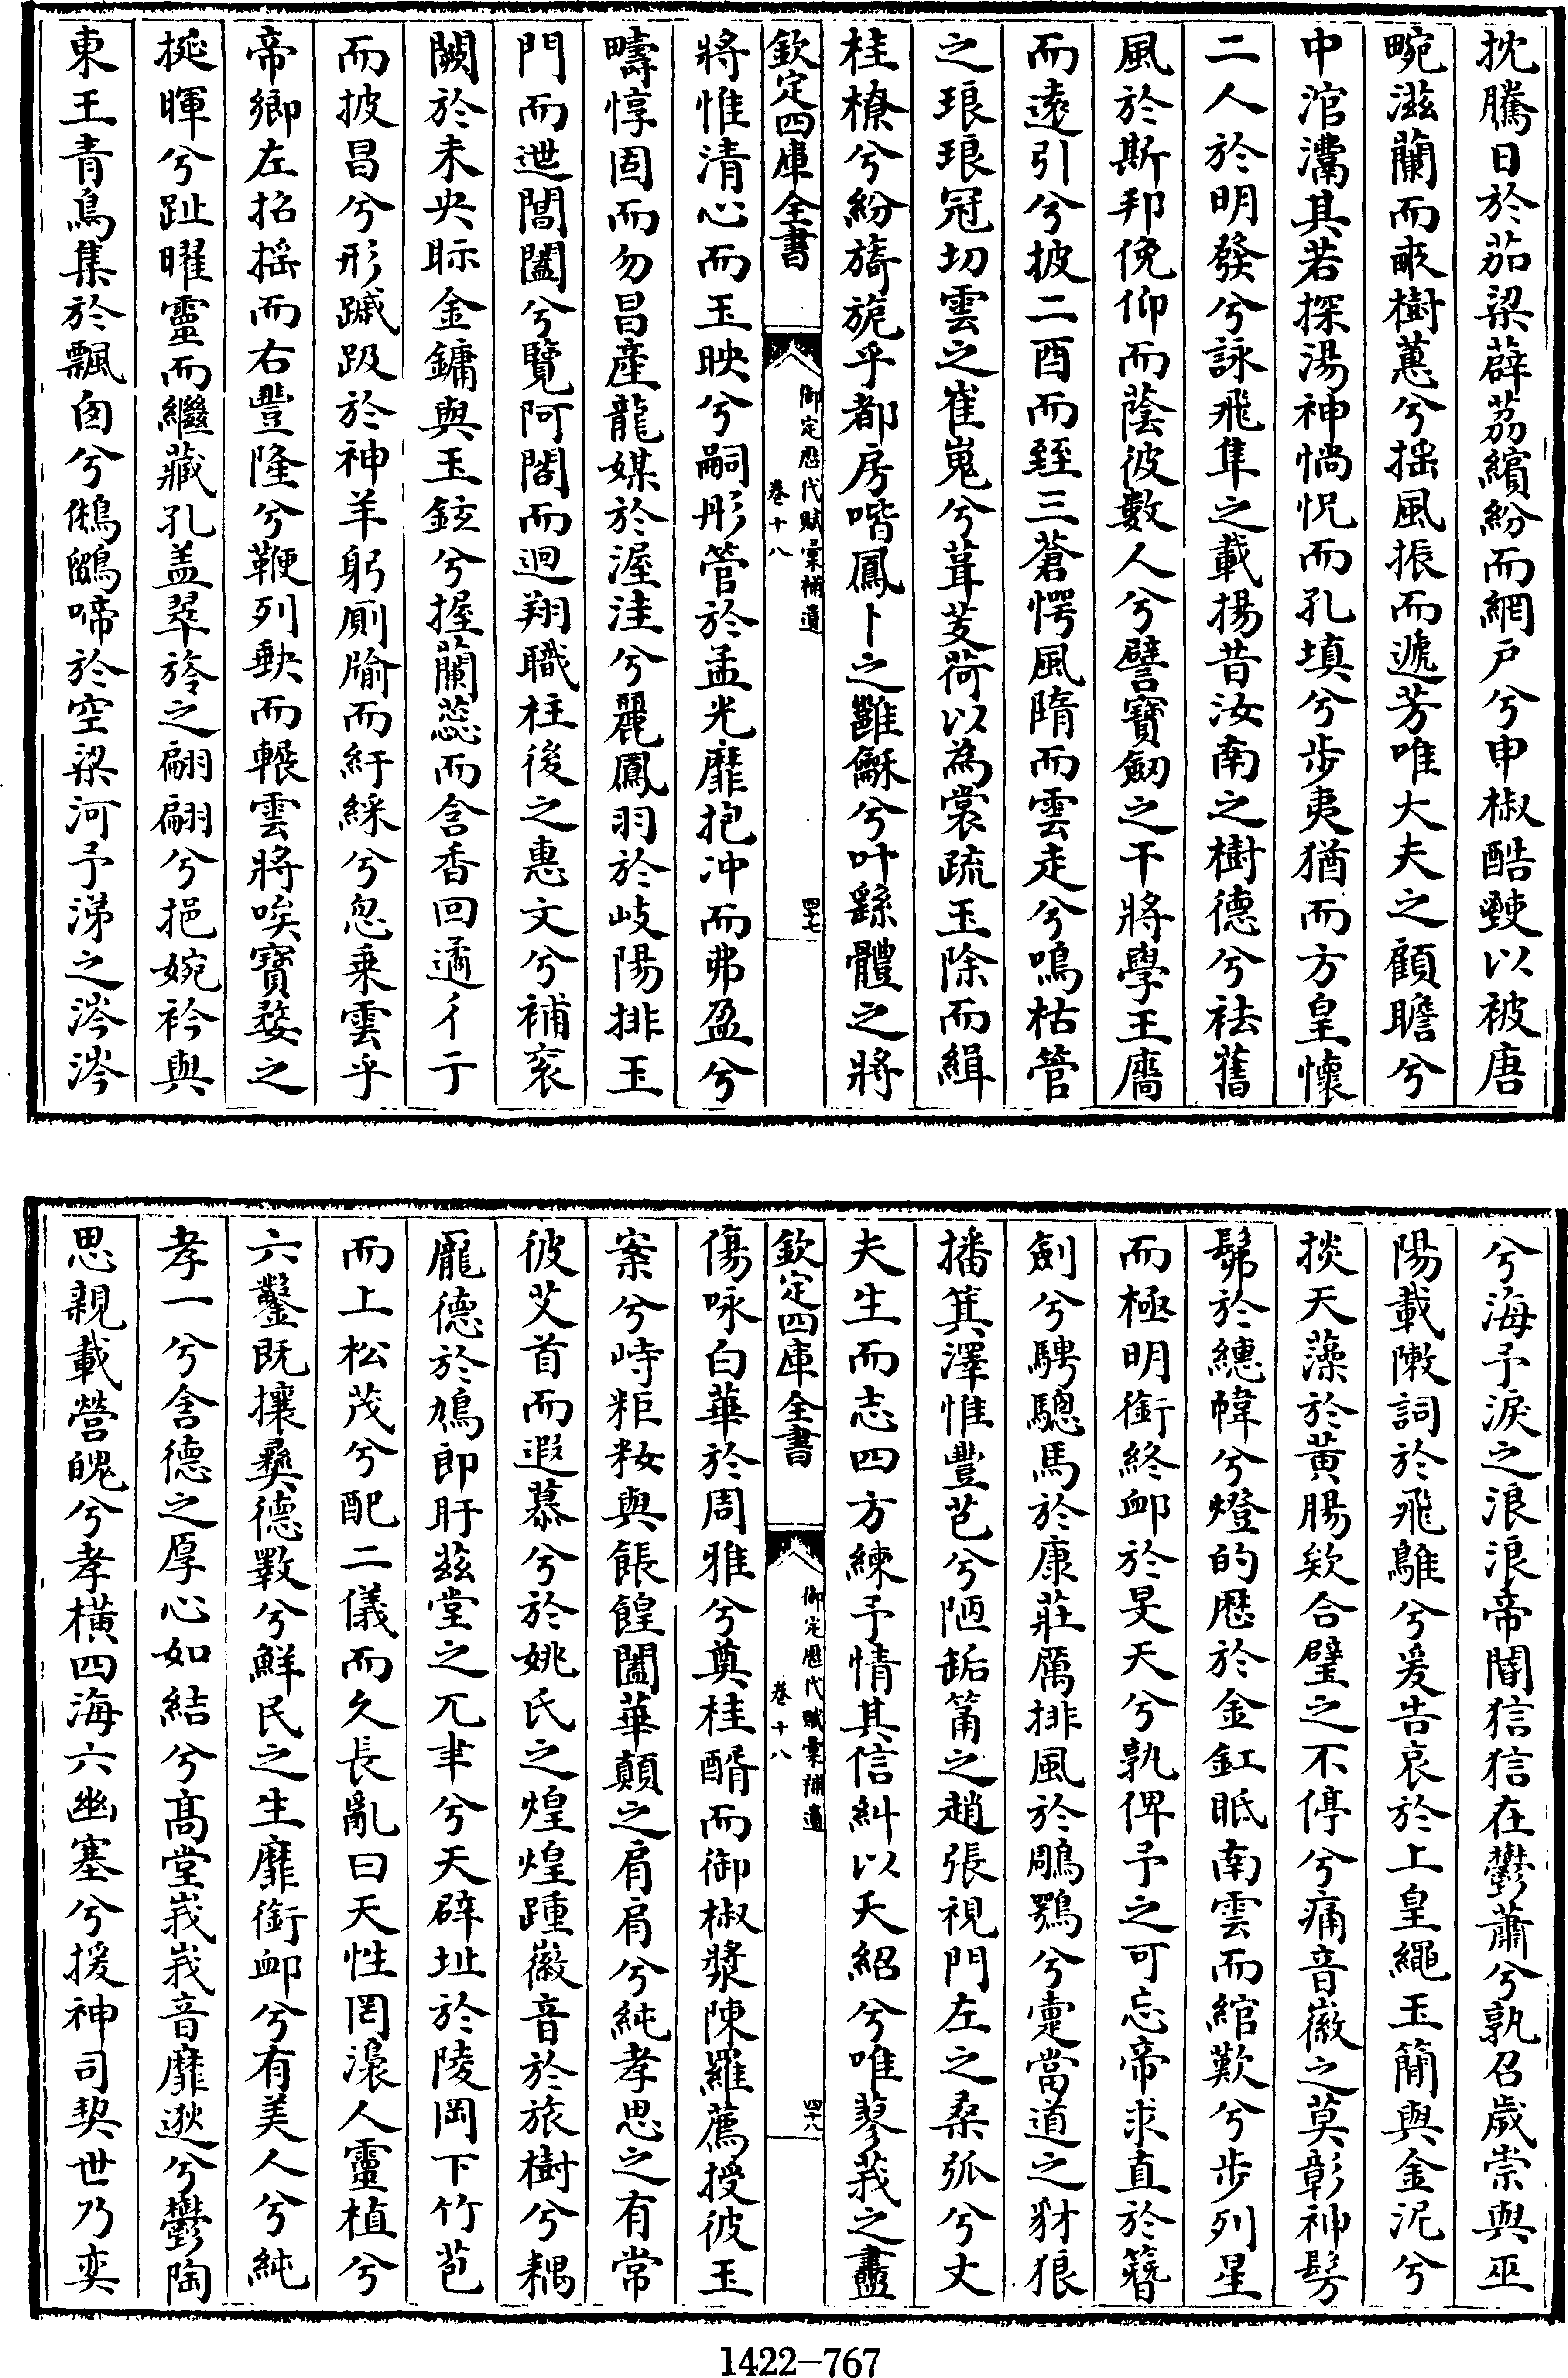 抌騰日於茄梁薜荔繽紛而網戸兮申椒酷䴭以被唐
畹滋蘭而畞樹蕙兮揺風振而遞芳唯大夫之顧瞻兮
中涫灊其若探湯神惝怳而孔填兮步夷猶而方皇懷
二人於明發兮詠飛隼之載揚昔汝南之樹德兮祛舊
風於斯邦俛仰而蔭彼數人兮譬寶劒之干將學王喬
而遠引兮披二酉而臸三蒼愕風隋而雲走兮鳴枯管
之琅琅冠切雲之崔嵬兮葺芰荷以為裳疏玉除而緝
桂橑兮紛旖旎乎都房喈鳳卜之雝龢兮叶繇體之將
欽定四庫全書
御定歴代賦彙補遺
卷十八
四十七
將惟清心而玉映兮嗣彤管於孟光靡抱冲而弗盈兮
疇惇固而勿昌産龍媒於渥洼兮麗鳳羽於岐陽排玉
門而迣閶闔兮覽阿閣而迴翔職柱後之惠文兮補衮
闕於未央眎金鏞與玉鉉兮握蘭蕊而含香回遹彳亍
而披昌兮形䠞趿於神羊躬厠牏而紆綵兮忽乗雲乎
帝鄉左招揺而右豐隆兮鞭列缺而輾雲將唉寶婺之
挻暉兮趾曜靈而繼藏孔盖翠旍之翩翩兮挹婉衿與
東王青鳥集於飄囪兮鵂鶹啼於空梁河予涕之涔涔
兮海予淚之浪浪帝閽狺狺在鬱蕭兮孰召歲祟與巫
陽載敶詞於飛鵻兮爰告哀於上皇繩玉簡與金泥兮
掞天藻於黄腸欸合璧之不停兮痛音徽之莫彰神髣
髴於繐幃兮燈的歴於金釭眂南雲而綰歎兮步列星
而極明銜終卹於旻天兮孰俾予之可忘帝求直於簪
劍兮騁驄馬於康莊厲排風於鵰鶚兮寁當道之豺狼
播箕澤惟豐芑兮陋缿筩之趙張視門左之桑弧兮丈
夫生而志四方練予情其信糾以夭紹兮唯蓼莪之衋
欽定四庫全書
御定歴代賦彙補遺
卷十八
四十八
傷咏白華於周雅兮奠桂醑而御椒漿陳羅薦授彼玉
案兮峙粔籹與餦餭闔華顛之肩肩兮純孝思之有常
彼艾首而遐慕兮於姚氏之煌煌踵徽音於旅樹兮耦
龐德於鳩郎盱兹堂之兀聿兮天辟址於陵岡下竹苞
而上松茂兮配二儀而久長亂曰天性罔滾人靈植兮
六鑿既攘彝德斁兮鮮民之生靡銜卹兮有美人兮純
孝一兮含德之厚心如結兮髙堂峩峩音靡逖兮鬱陶
思親載營魄兮孝横四海六幽塞兮援神司契世乃奕
1422-767